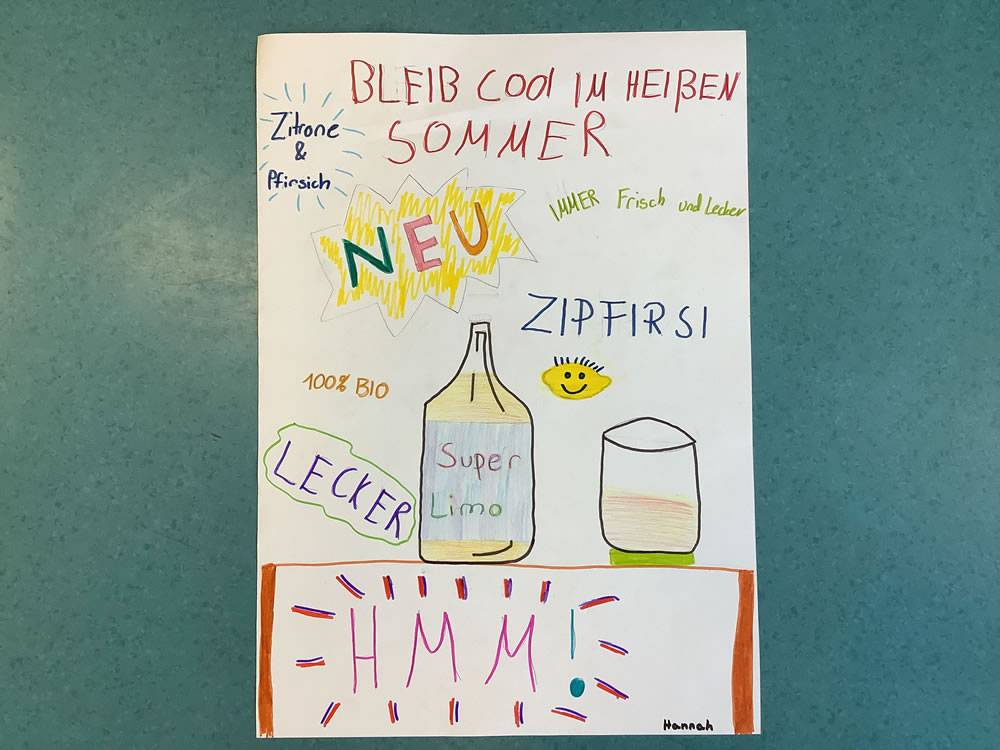 BLEIB COOl IM HEIßEN
SOMMER
Zitrone
&
Pfirsich
NEU
IMMER Frisch und Lecker
ZIPFIRSI
100% BIO
LECKER
Super
Limo
HMM!
Hannah